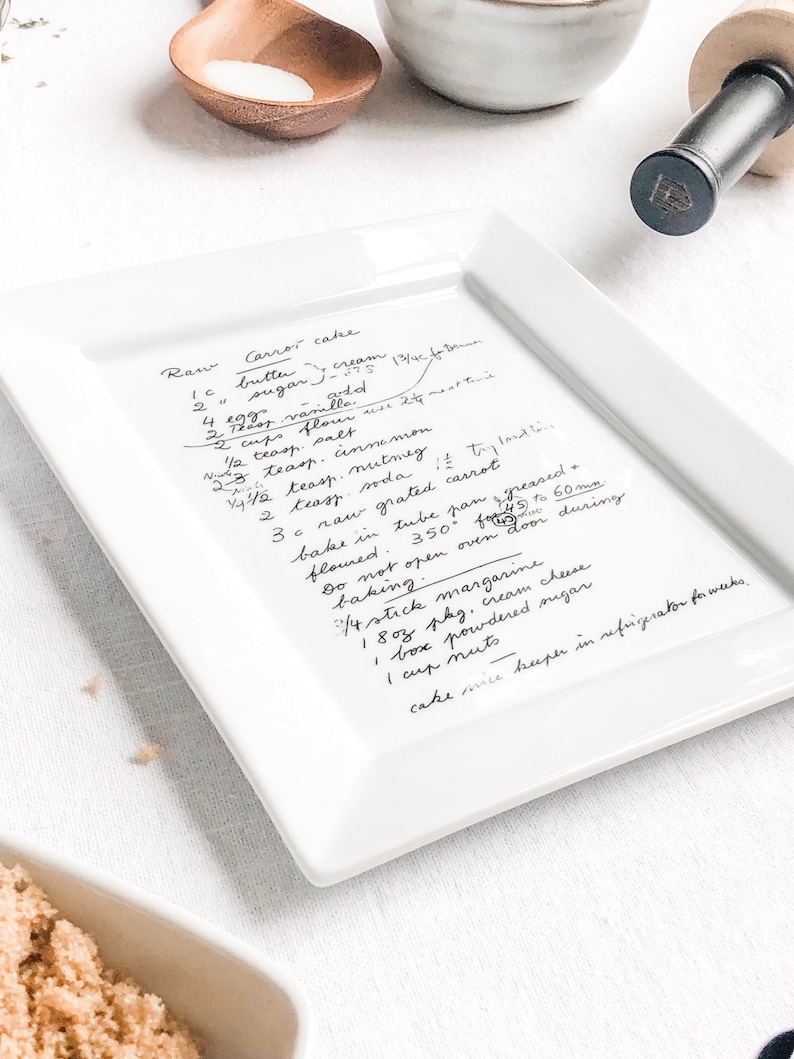 Raw Carrot cake
1 c butter } cream 1 3/4 c for Denver
2 " sugar
4 eggs add
2 Teasp. vanilla
2 cups flour use 2 1/4 next time
1/2 teasp. salt
2 3 teasp. cinnamon
1/4 1/2 teasp. nutmeg
2 teasp. soda 1 1/2 try
3 c raw grated carrot
bake in tube pan greased +
floured. 350° for 45 to 60 mn
Do not open oven door during
baking.
3/4 stick margarine
1 8oz pkg. cream cheese
1 box powdered sugar
1 cup nuts
cake nice keeper in refrigerator for weeks.